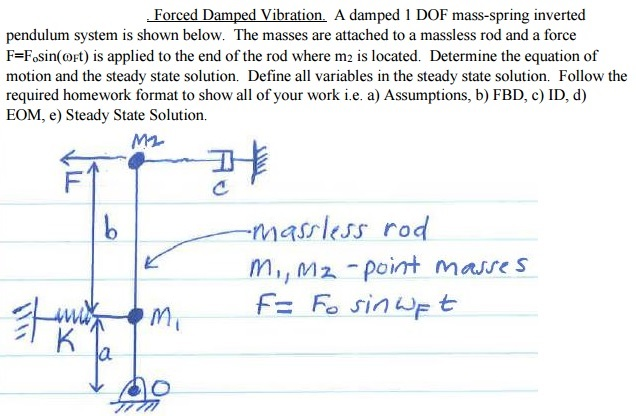 . Forced Damped Vibration. A damped 1 DOF mass-spring inverted
pendulum system is shown below. The masses are attached to a massless rod and a force
F=Fₒsin(ωFt) is applied to the end of the rod where m₂ is located. Determine the equation of
motion and the steady state solution. Define all variables in the steady state solution. Follow the
required homework format to show all of your work i.e. a) Assumptions, b) FBD, c) ID, d)
EOM, e) Steady State Solution.
M2
F
C
b
massless rod
M1, M2 - point masses
F = F0 sin ωF t
M1
K
a
O